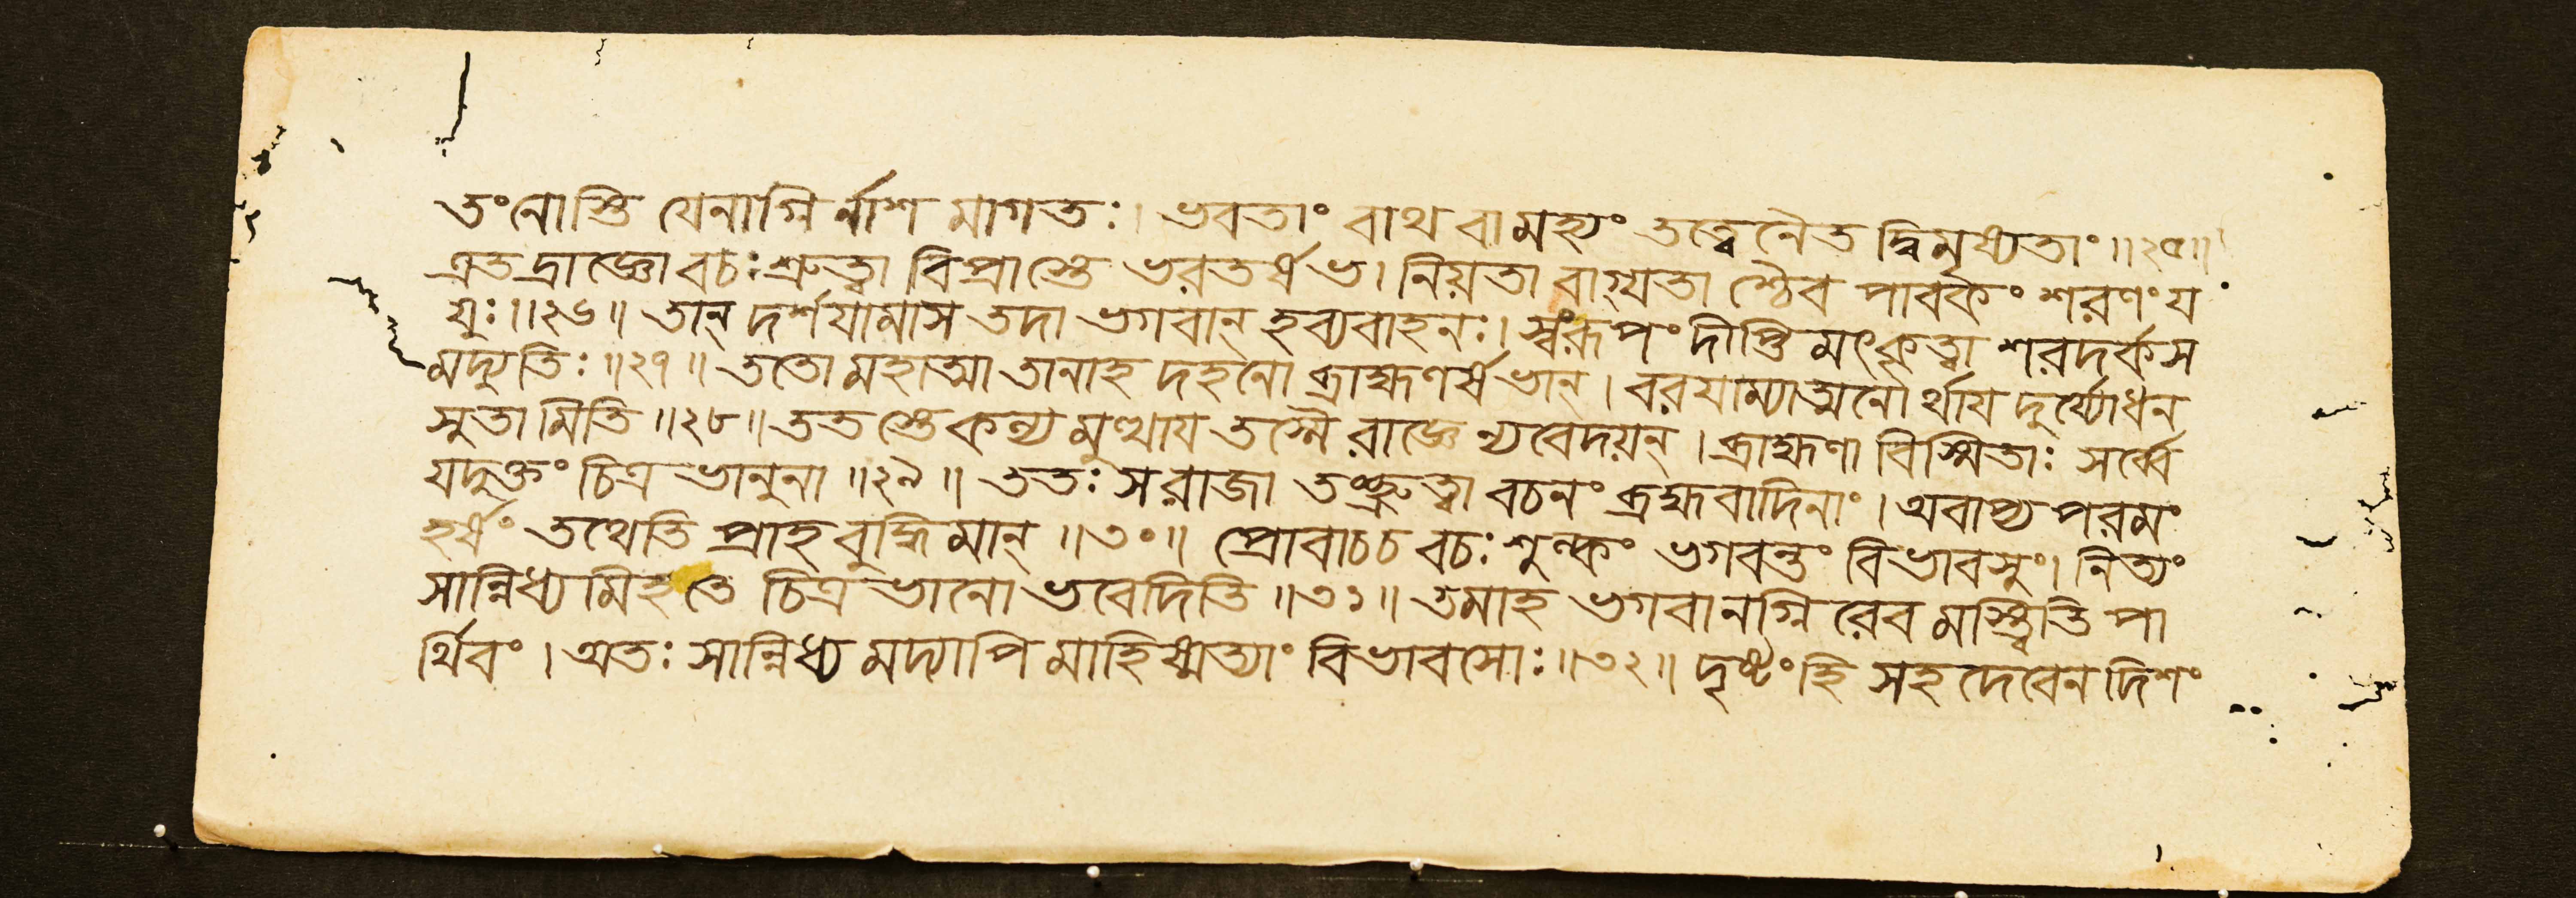 তংনোস্তি যেনাগ্নির্নাশমাগতঃ। ভবতাং বাথ বা মহ্যং তত্ত্বেনৈতদ্বিমৃষ্যতাং॥২৫॥
এতদ্রাজ্ঞোবচঃ শ্রুত্বা বিপ্রাস্তে ভরতর্ষভ। নিয়তা বাগ্যতাশ্চৈব পাবকং শরণং য
যুঃ॥২৬॥ তান্ দর্শযামাস তদা ভগবান্ হব্যবাহনঃ। স্বংরূপং দীপ্তিমৎকৃত্বা শরদর্কস
মদ্যুতিঃ॥২৭॥ ততো মহাত্মা তানাহ দহনো ব্রাহ্মণর্সভান্। বরযাম্যাত্মনোর্থায দুর্য্যোধন
সুতামিতি॥২৮॥ ততস্তে কল্যমুত্থায তস্মৈ রাজ্ঞে ন্যবেদয়ন্। ব্রাহ্মণা বিস্মিতাঃ সর্ব্বে
যদুক্তং চিত্রভানুনা॥২৯॥ ততঃ স রাজা তৎশ্রুত্বা বচনং ব্রহ্মবাদিনাং। অবাপ্য পরমং
হর্ষং তথেতি প্রাহ বুদ্ধিমান্॥৩০॥ প্রোবাচচ বচঃ শুল্কং ভগবন্তং বিভাবসুং। নিত্যং
সান্নিধ্যমিহ তে চিত্রভানো ভবেদিতি॥৩১॥ তমাহ ভগবানগ্নিরেবমস্ত্বিতি পা
র্থিবং। অতঃ সান্নিধ্যমদ্যাপি মাহিষ্মত্যাং বিভাবসোঃ॥৩২॥ দৃষ্টংহি সহদেবেন দিশং